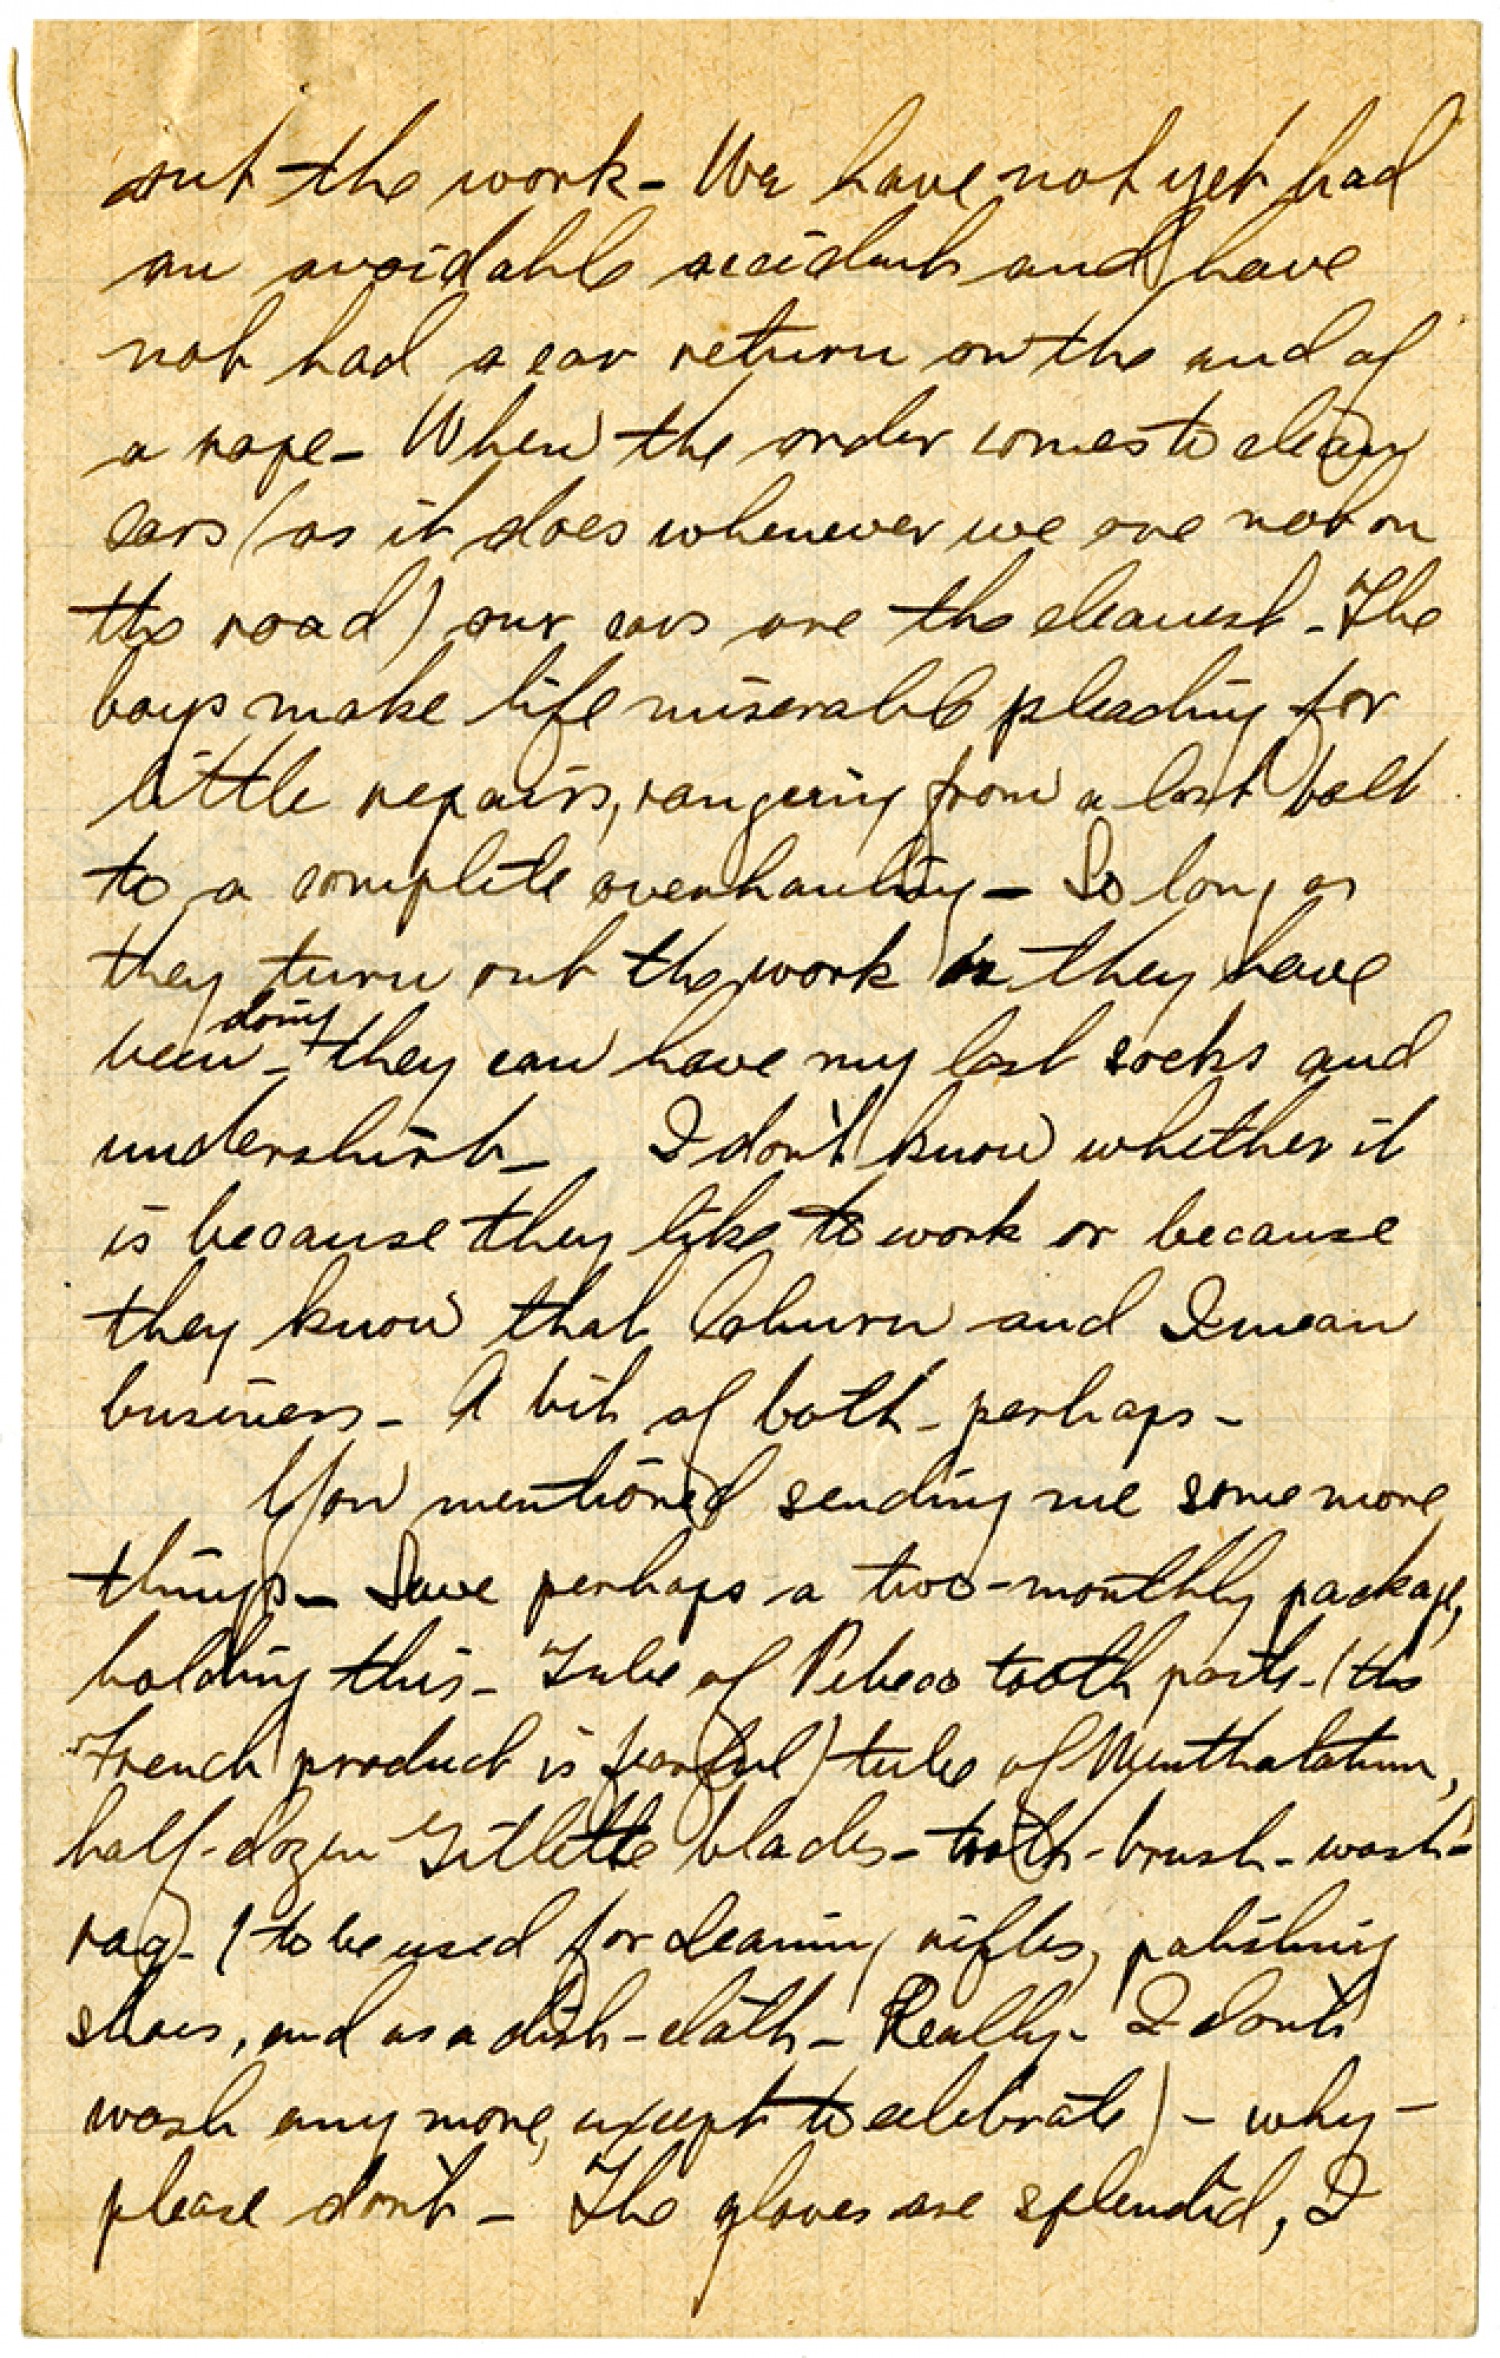 out the work - We have not yet had
an avoidable accident and have
not had a car return on the end of
a rope - When the order comes to clean
cars (as it does whenever we are not on
the road) our cars are the cleanest - The
boys make life miserable pleading for
little repairs, rangeing from a lost bolt
to a complete overhauling - So long as
they turn out the work they have
been doing - they can have my last socks and
undershirt - I don't know whether it
is because they like to work or because
they know that Coburn and I mean
business - A bit of both - perhaps -
You mentioned sending me some more
things - Save perhaps a two-monthly package,
holding this - Tube of Pebeco tooth paste - (the
French product is fearful) tube of Mentholatum,
half-dozen Gillette blades - tooth-brush - wash-
rag - (to be used for cleaning rifles, polishing
shoes, and as a dish-cloth - Really - I don't
wash any more, except to celebrate) - why -
please don't - The gloves are splendid, I